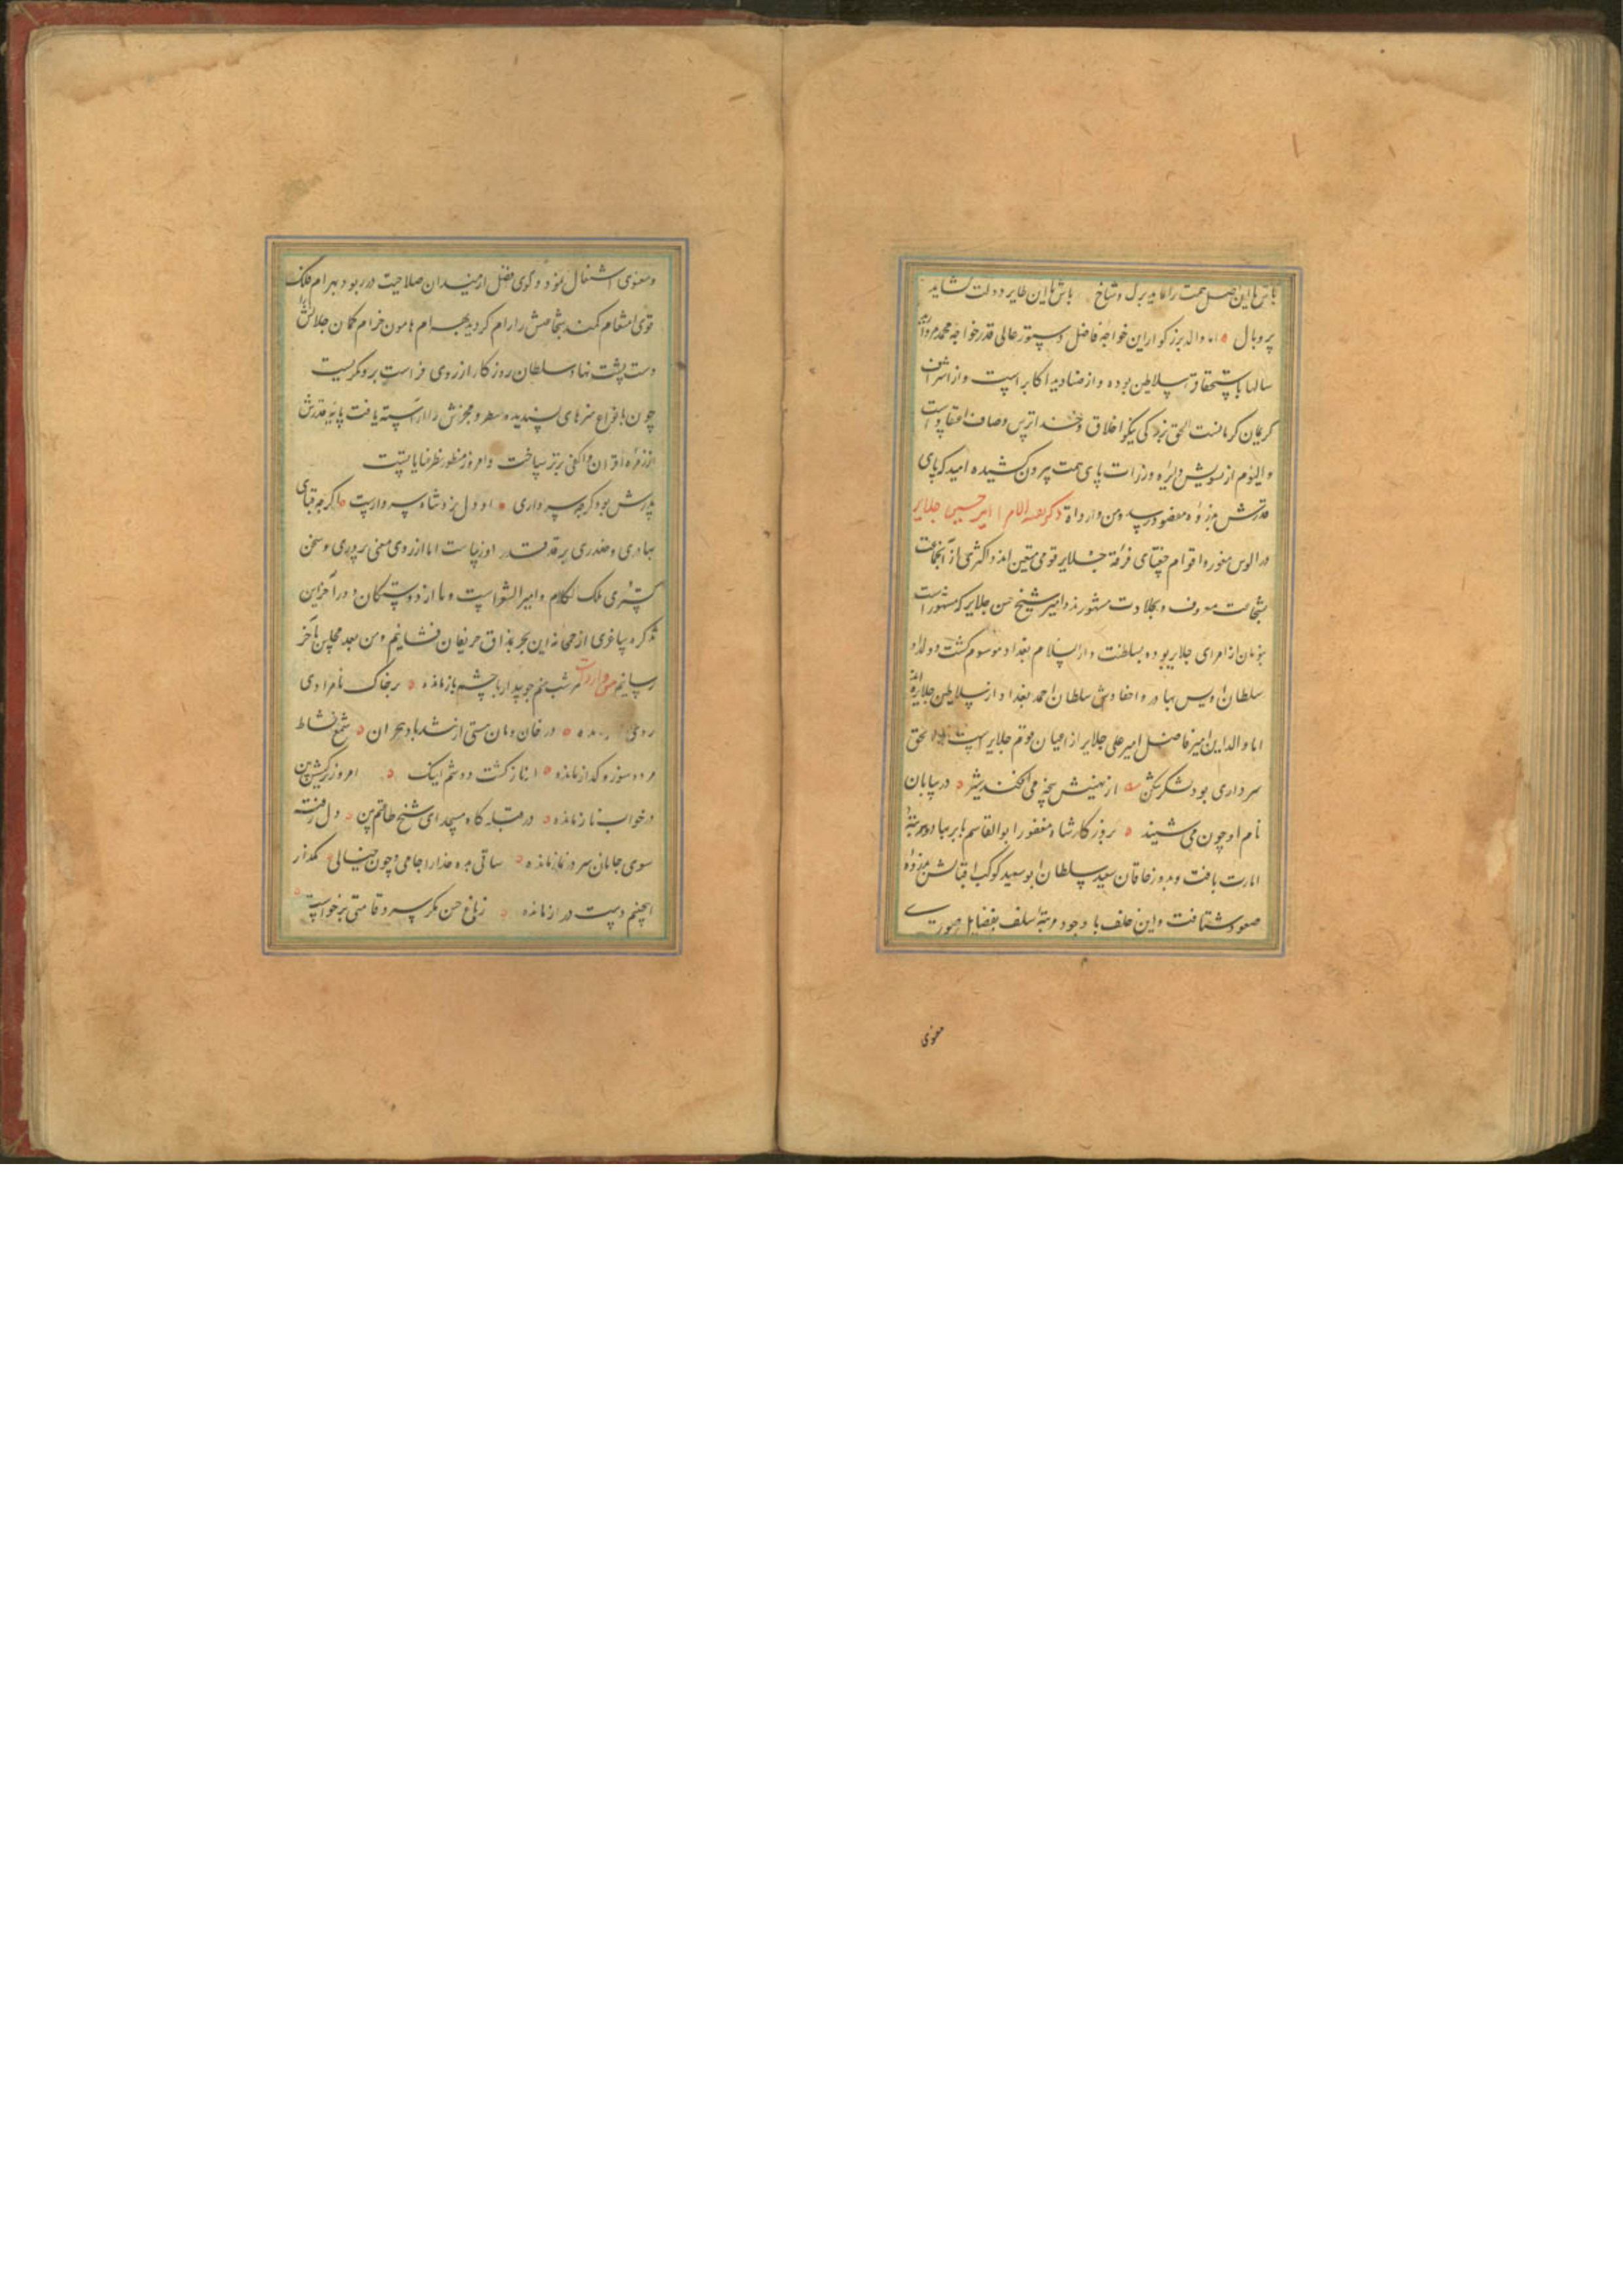 باش تا این اصل همت را بباید برگ و شاخ باش تا این طایر دولت گشاید
پر و بال اما والد بزرگوار این خواجه فاضل دستور عالی قدر خواجه محمد مروارید
سالها باستحقاق سلاطین بوده و از صنادید اکابر است و از اشراف
کرمان کرمانست الحق بزرکی نیکو اخلاق و خدا ترس و صاف اعتقاد است
و الیوم از تشویش دایره وزرات پای همت بیرون کشیده امید که پای
قدرش بذروه مقصود رسد ومن وارداته ذکر امیر حسین جلایر
در الوس مغور و اقوام جغتای فرقهٔ جلایر قومی متعین اند و اکثری از آنجماعت
بشجاعت معروف و بجلادت مشهورند و امیر شیخ حسن جلایر که مشهور است
بنویان از امرای جلایر بوده بسلطنت دار السلام بغداد موسوم کشت و ولد او
سلطان اویس بهادر و احفادش سلطان احمد بغداد از سلاطین جلایره اند
اما والد این امیر فاضل امیر علی جلایر از اعیان قوم جلایر است الحق
سرداری بود لشکر شکن از نهیبش پنجه می افکند شیر در بیابان
نام او چون می شنید بروزکار شاه مغفور ابو القاسم بابر بهادر بمرتبه
امارت یافت و بروز خاقان سعید سلطان ابو سعید کوکب اقبالش بذروه
صعود شتافت و این خلف با وجود مرتبه سلف بفضایل صوری
معنوی
ومعنوی اشتغال نمود و کوی فضل از میدان صلاحیت در ربود بهرام فلک
قوی انتقام کمند شجاعتش را رام کردید بهرام هامون خرام کمان جلادتش را
دست پشت نهاد سلطان روزکار از روی فراست برو نکریست
چون بانواع هنرهای پسندیده منظر و مخبرش را آراسته یافت پایه قدرش
از زمره اقران و اکفی برتر ساخت و امروز منظور نظر عنایاتست
پدرش بود کرچه سرداری او دل نزد شاه سرداریست اکرچه قبای
بهادری و صفدری بر قد قدر او زیباست اما از روی معنی پروری و سخن
کستری ملک الکلام و امیر الشعراست و ما از دوستکان در آخر این
تذکره ساغری از خمخانه این بحر بمذاق حریفان فشانیم و من بعد مجلس بآخر
رسانیم من وارداته هر شب منم چو بیدار با چشم باز مانده بر خاک نامرادی
روی مانده در خان و مان مستی از تندباد هجران شمع نشاط
مرده سوز و کداز مانده از ناز کشت دوشم اینک امروز نرکسش بین
در خواب ناز مانده در قبله کاه مسجد ای شیخ طاعتم بین دل رفته
سوی جانان سر در نماز مانده ساقی بده خدا را جامی و چون خیالی مکذار
اینچنینم دست دراز مانده ز باغ حسن مکر سرو قامتی برخواست